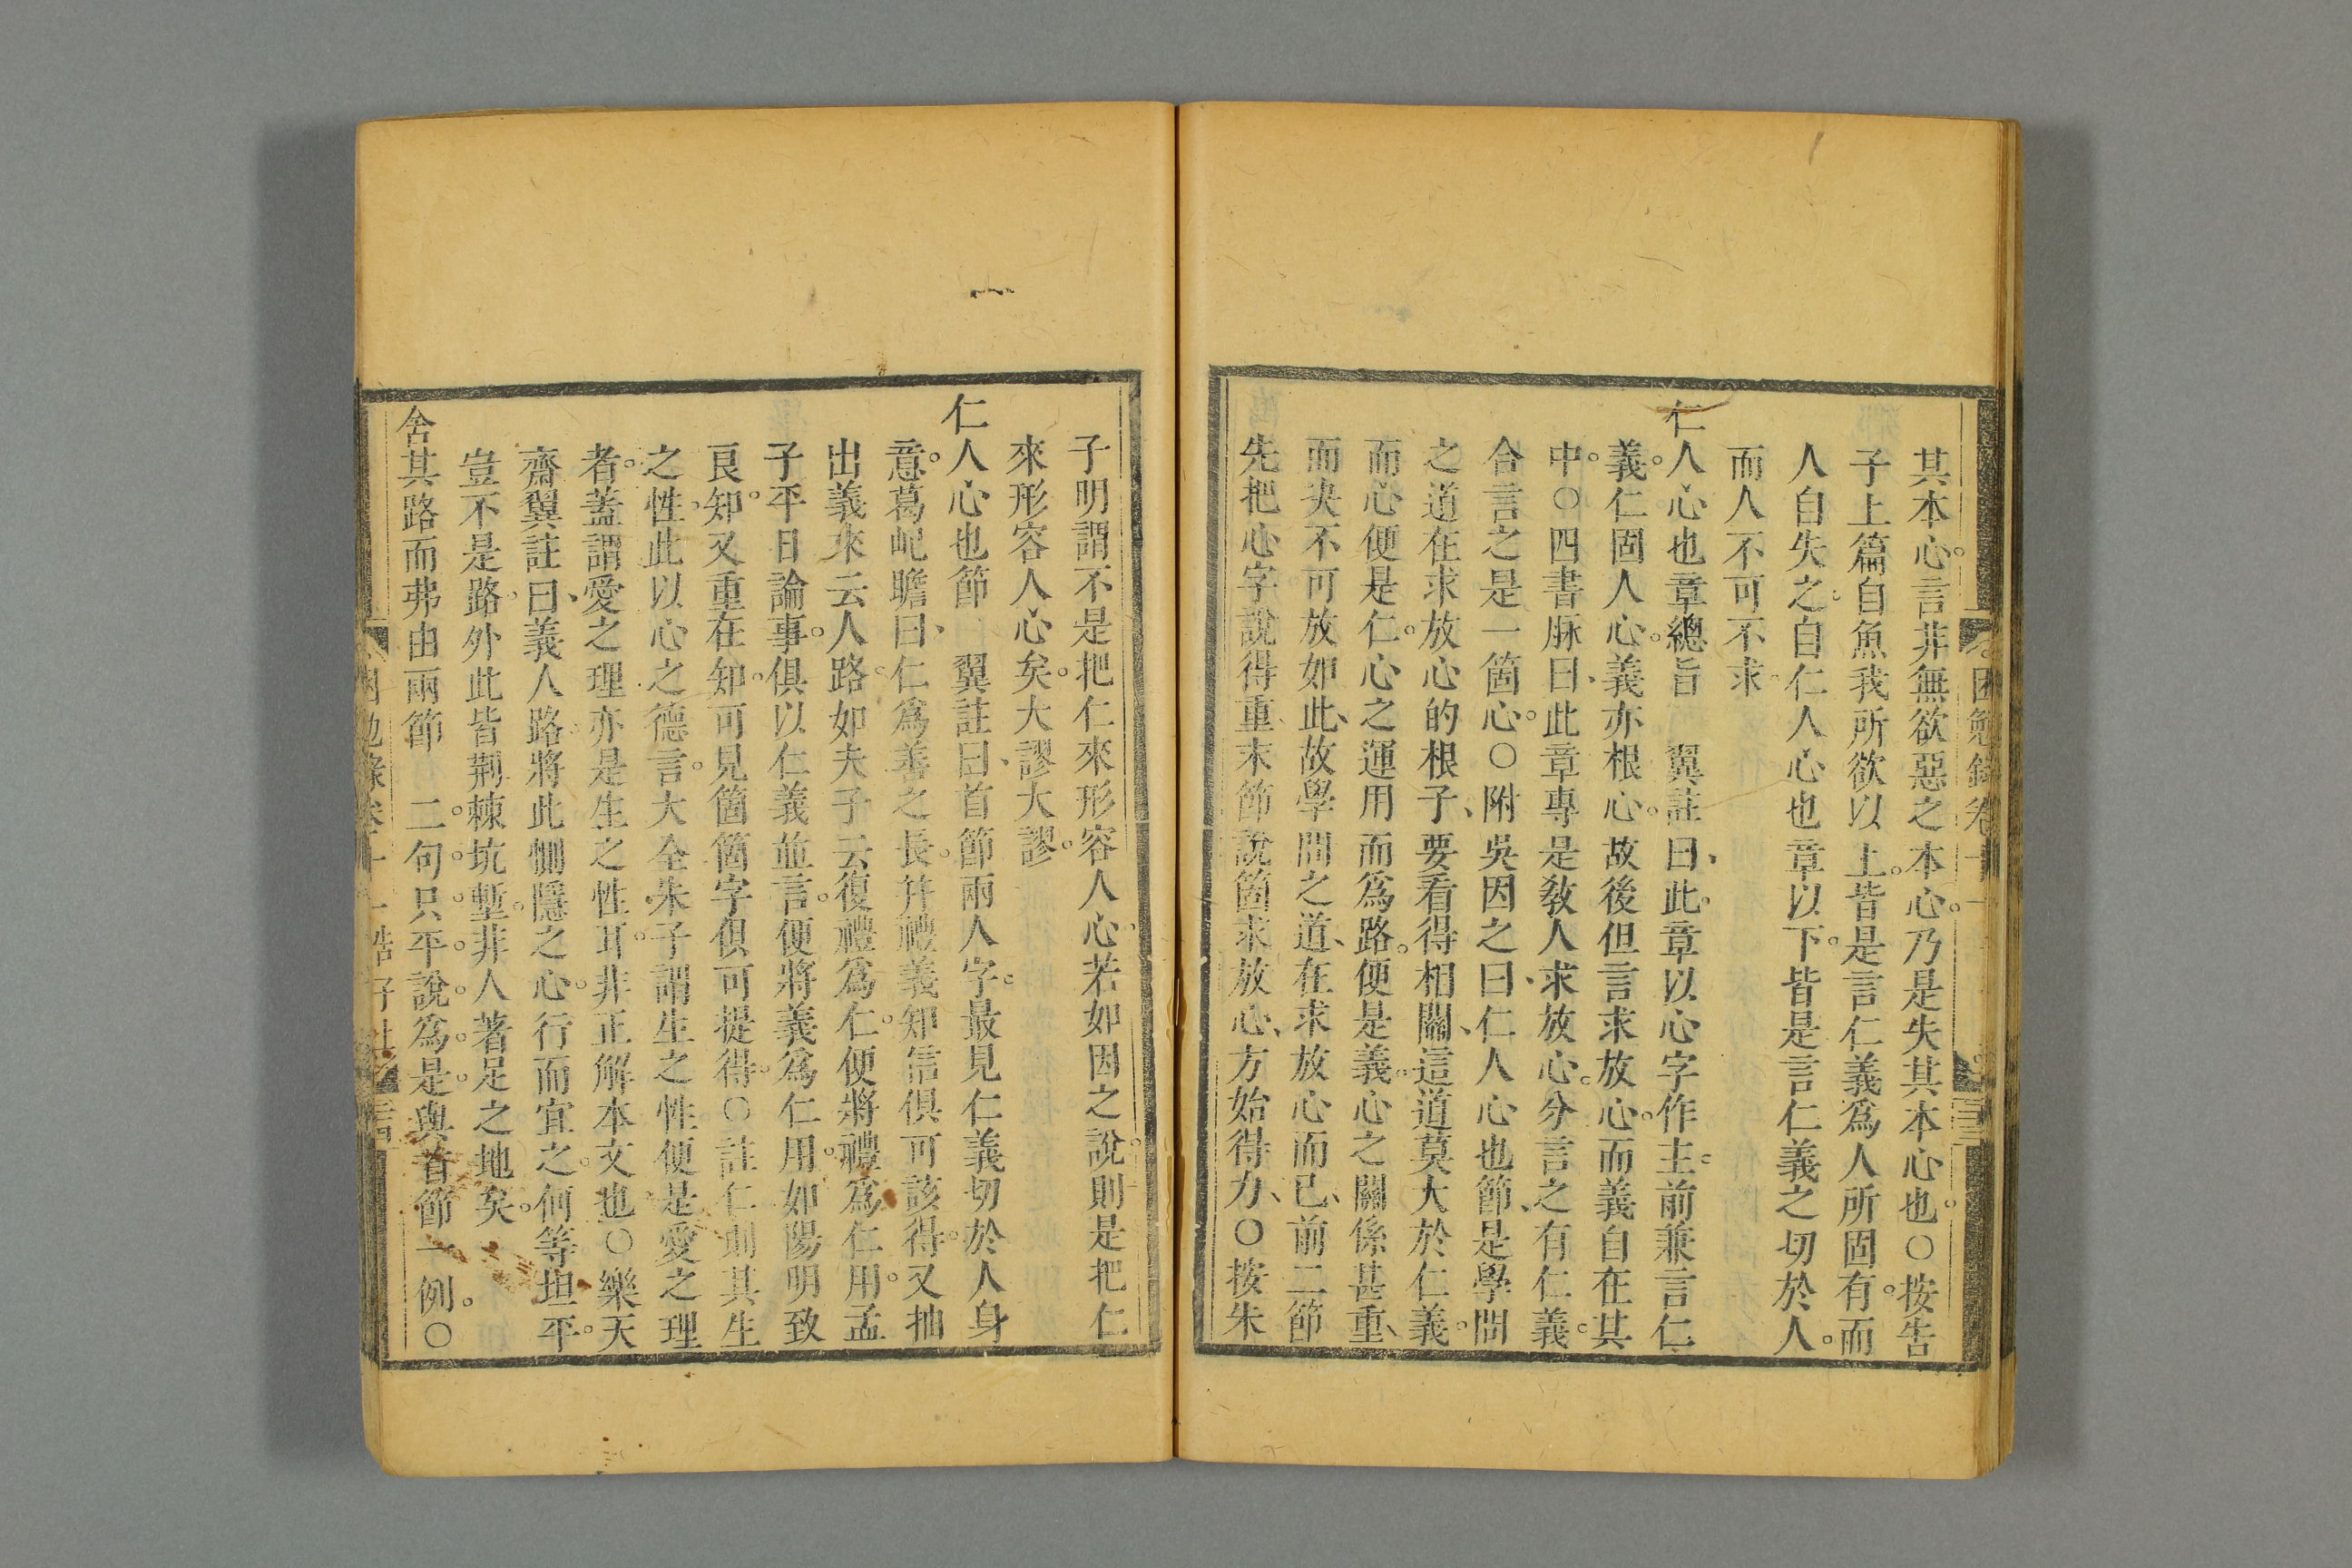 其本心言非無欲惡之本心乃是失其本心也○按告
子上篇自魚我所欲以上皆是言仁義爲人所固有而
人自失之自仁人心也章以下皆是言仁義之切於人
而人不可不求
仁人心也章總旨 翼註曰此章以心字作主前兼言仁
義仁固人心義亦根心故後但言求放心而義自在其
中○四書脉曰此章專是敎人求放心分言之有仁義
合言之是一箇心○附吳因之曰仁人心也節是學問
之道在求放心的根子要看得相關這道莫大於仁義
而心便是仁心之運用而爲路便是義心之關係甚重
而決不可放如此故學問之道在求放心而已前二節
先把心字說得重末節說箇求放心方始得力○按朱
子明謂不是把仁來形容人心若如因之說則是把仁
來形容人心矣大謬大謬
仁人心也節 翼註曰首節兩人字最見仁義切於人身
意葛屺瞻曰仁爲善之長幷禮義知信俱可該得又抽
出義來云人路如夫子云復禮爲仁便將禮爲仁用孟
子平日論事俱以仁義並言便將義爲仁用如陽明致
良知又重在知可見箇箇字俱可提得○註仁則其生
之性此以心之德言大全朱子謂生之性便是愛之理
者蓋謂愛之理亦是生之性耳非正解本文也○樂天
齋翼註曰義人路將此惻隱之心行而宜之何等坦平
豈不是路外此皆荆棘坑塹非人著足之地矣
舍其路而弗由兩節 二句只平說爲是與首節一例○